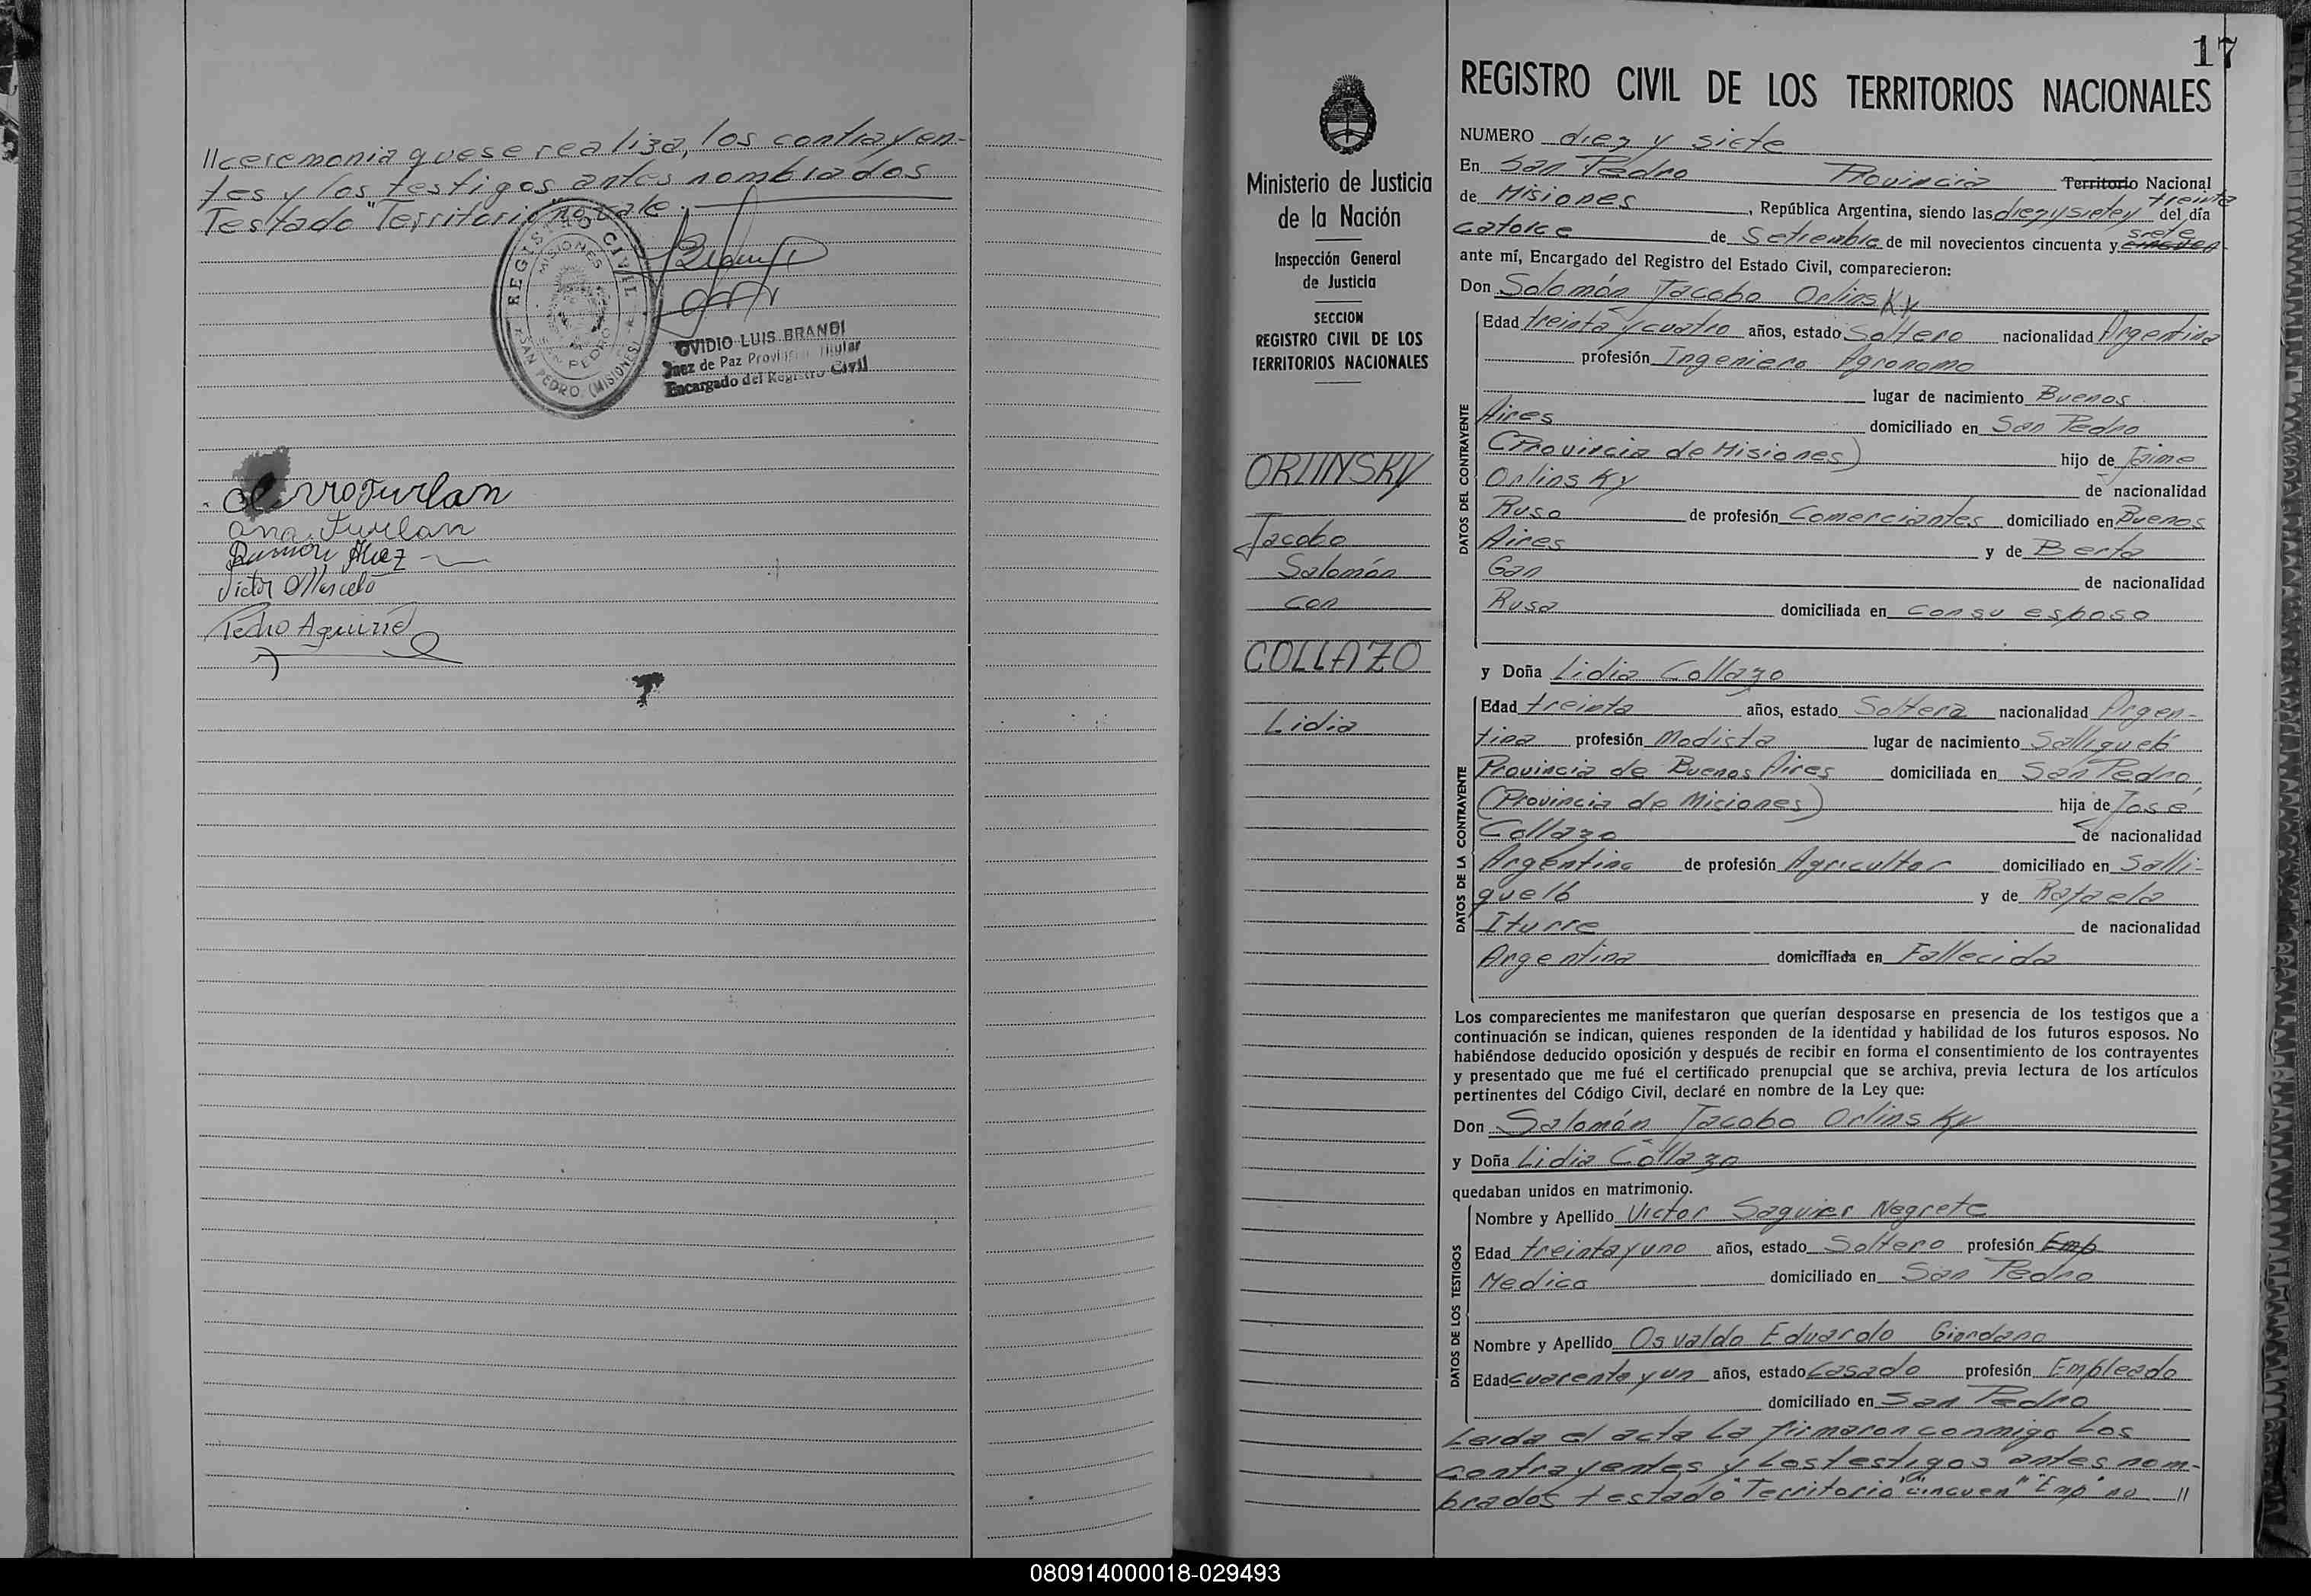 //ceremonia que se realiza, los contrayen-
tes y los testigos antes nombrados
Testado "Territorio" no vale.
REGISTRO CIVIL
MISIONES
SAN PEDRO
SAN PEDRO (MISIONES)
OVIDIO LUIS BRANDI
Juez de Paz Provincial Titular
Encargado del Registro Civil
Furlan
Ana Furlan
Victor Marcelo
Pedro Aguirre
17
Ministerio de Justicia
de la Nación
Inspección General
de Justicia
SECCION
REGISTRO CIVIL DE LOS
TERRITORIOS NACIONALES
ORLINSKY
Jacobo
Salomón
con
COLLAZO
Lidia
REGISTRO CIVIL DE LOS TERRITORIOS NACIONALES
NUMERO diez y siete
En San Pedro Provincia Territorio Nacional
de Misiones, República Argentina, siendo las diez y siete y treinta del día
catorce de Setiembre de mil novecientos cincuenta y cincuen siete
ante mí, Encargado del Registro del Estado Civil, comparecieron:
Don Salomón Jacobo Orlinsky
DATOS DEL CONTRAYENTE
Edad treinta y cuatro años, estado Soltero nacionalidad Argentina
profesión Ingeniero Agronomo
lugar de nacimiento Buenos
Aires domiciliado en San Pedro
(Provincia de Misiones) hijo de Jaime
Orlinsky de nacionalidad
Ruso de profesión Comerciantes domiciliado en Buenos
Aires y de Berta
Gan de nacionalidad
Rusa domiciliada en con su esposo
y Doña Lidia Collazo
DATOS DE LA CONTRAYENTE
Edad treinta años, estado Soltera nacionalidad Argen-
tina profesión Modista lugar de nacimiento Salliqueló
Provincia de Buenos Aires domiciliada en San Pedro,
(Provincia de Misiones) hija de José
Collazo de nacionalidad
Argentino de profesión Agricultor domiciliado en Salli-
queló y de Rafaela
Iturre de nacionalidad
Argentina domiciliada en Fallecida
Los comparecientes me manifestaron que querían desposarse en presencia de los testigos que a
continuación se indican, quienes responden de la identidad y habilidad de los futuros esposos. No
habiéndose deducido oposición y después de recibir en forma el consentimiento de los contrayentes
y presentado que me fué el certificado prenupcial que se archiva, previa lectura de los artículos
pertinentes del Código Civil, declaré en nombre de la Ley que:
Don Salomón Jacobo Orlinsky
y Doña Lidia Collazo
quedaban unidos en matrimonio.
DATOS DE LOS TESTIGOS
Nombre y Apellido Victor Saguier Negrete
Edad treinta y uno años, estado Soltero profesión Emp
Medico domiciliado en San Pedro
Nombre y Apellido Osvaldo Eduardo Giordano
Edad cuarenta y un años, estado Casado profesión Empleado
domiciliado en San Pedro
Leida el acta la firmaron conmigo los
contrayentes y los testigos antes nom-
brados testado "Territorio" "cincuen" "Emp" no //
080914000018-029493